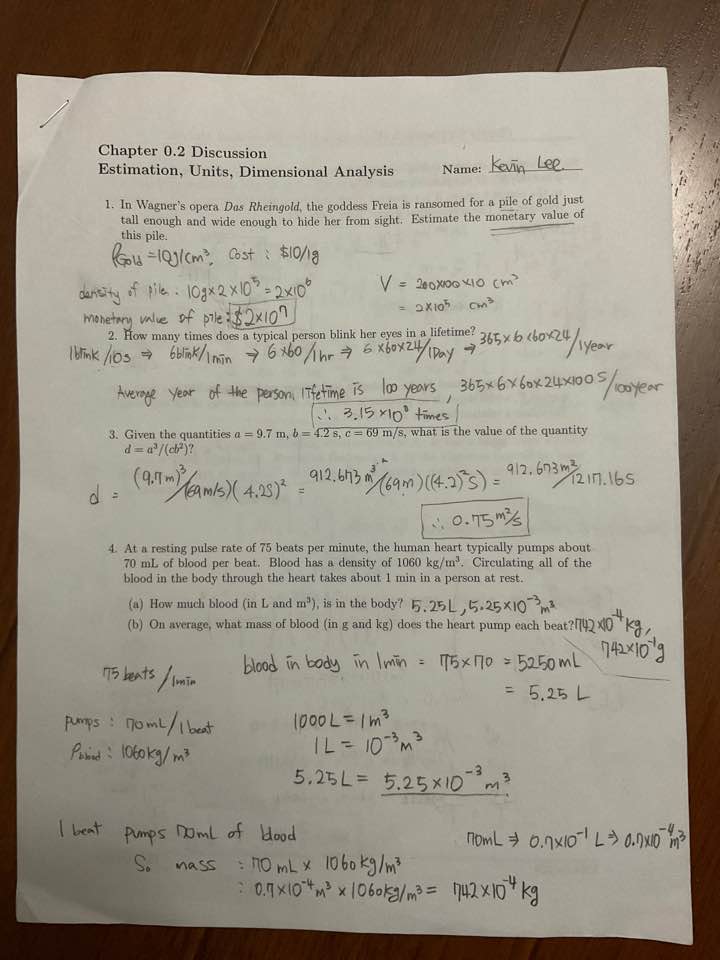 Chapter 0.2 Discussion
Estimation, Units, Dimensional Analysis
Name: Kevin Lee
1. In Wagner's opera Das Rheingold, the goddess Freia is ransomed for a pile of gold just
tall enough and wide enough to hide her from sight. Estimate the monetary value of
this pile.
ρGold = 10g/cm³, Cost : $10/1g
density of pile : 10g × 2 × 10⁵ = 2×10⁶
V = 200×100×10 cm³
= 2×10⁵ cm³
monetary value of pile : $2×10⁷
2. How many times does a typical person blink her eyes in a lifetime?
1blink/10s ⇒ 6blink/1min ⇒ 6×60/1hr ⇒ 6×60×24/1Day ⇒ 365×6×60×24/1year
Average year of the person lifetime is 100 years, 365×6×60×24×100 S/100year
∴ 3.15×10⁸ times
3. Given the quantities a = 9.7 m, b = 4.2 s, c = 69 m/s, what is the value of the quantity
d = a³/(cb²)?
d = (9.7m)³/(69m/s)(4.2S)² = 912.673m³/(69m)((4.2)²S) = 912.673m²/1217.16S
∴ 0.75m²/s
4. At a resting pulse rate of 75 beats per minute, the human heart typically pumps about
70 mL of blood per beat. Blood has a density of 1060 kg/m³. Circulating all of the
blood in the body through the heart takes about 1 min in a person at rest.
(a) How much blood (in L and m³), is in the body? 5.25L, 5.25×10⁻³m³
(b) On average, what mass of blood (in g and kg) does the heart pump each beat? 742×10⁻⁴kg,
742×10⁻¹g
75 beats/1min
blood in body in 1min = 75×70 = 5250mL
= 5.25 L
pumps : 70mL/1beat
ρblood : 1060kg/m³
1000L = 1m³
1L = 10⁻³m³
5.25L = 5.25×10⁻³m³
1 beat pumps 70mL of blood
70mL ⇒ 0.7×10⁻¹ L ⇒ 0.7×10⁻⁴m³
So mass : 70mL × 1060kg/m³
: 0.7×10⁻⁴m³ × 1060kg/m³ = 742×10⁻⁴kg